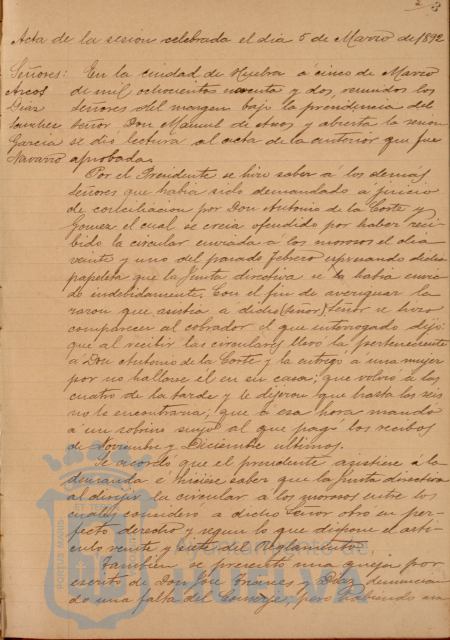 Acta de la sesion celebrada el dia 5 de Marzo de 1892
Señores: En la ciudad de Huelva á cinco de Marzo
Arcos de mil ochocientos noventa y dos, reunidos los
Diaz señores del margen bajo la presidencia del
Sanchez Señor Don Manuel de Arcos y abierta la sesion
Garcia se dió lectura al acta de la anterior que fue
Navarro aprobada.
Por el Presidente se hizo saber á los demas
señores que habia sido demandado á juicio
de conciliacion por Don Antonio de la Corte y
Gomez el cual se creia ofendido por haber reci-
bido la circular enviada á los morosos el dia
veinte y uno del pasado febrero expresando dicha
papeleta que la Junta directiva se la habia envia-
do indebidamente. Con el fin de averiguar la
razon que asistia á dicho (señor) Señor se hizo
comparecer al cobrador el que interrogado dijo:
que al recibir las circulares llevó la perteneciente
a Don Antonio de la Corte y la entregó a una mujer
por no hallarse él en su casa; que volvió a las
cuatro de la tarde y le dijeron que hasta las seis
no le encontraria; que á esa hora mandó
a un sobrino suyo al que pagó los recibos
de Noviembre y Diciembre ultimos.
Se acordó que el presidente asistiese á la
demanda é hiciese saber que la junta directiva
al dirijir la circular a los morosos entre los
cuales consideró a dicho Señor obró en per-
fecto derecho y segun lo que dispone el arti-
culo veinte y siete del Reglamento.
Tambien se presentó una queja por
escrito de Don José y Diaz denuncian-
do una falta del Conserje, pero habiendo
PORTUS MARIS
ET TERRAE